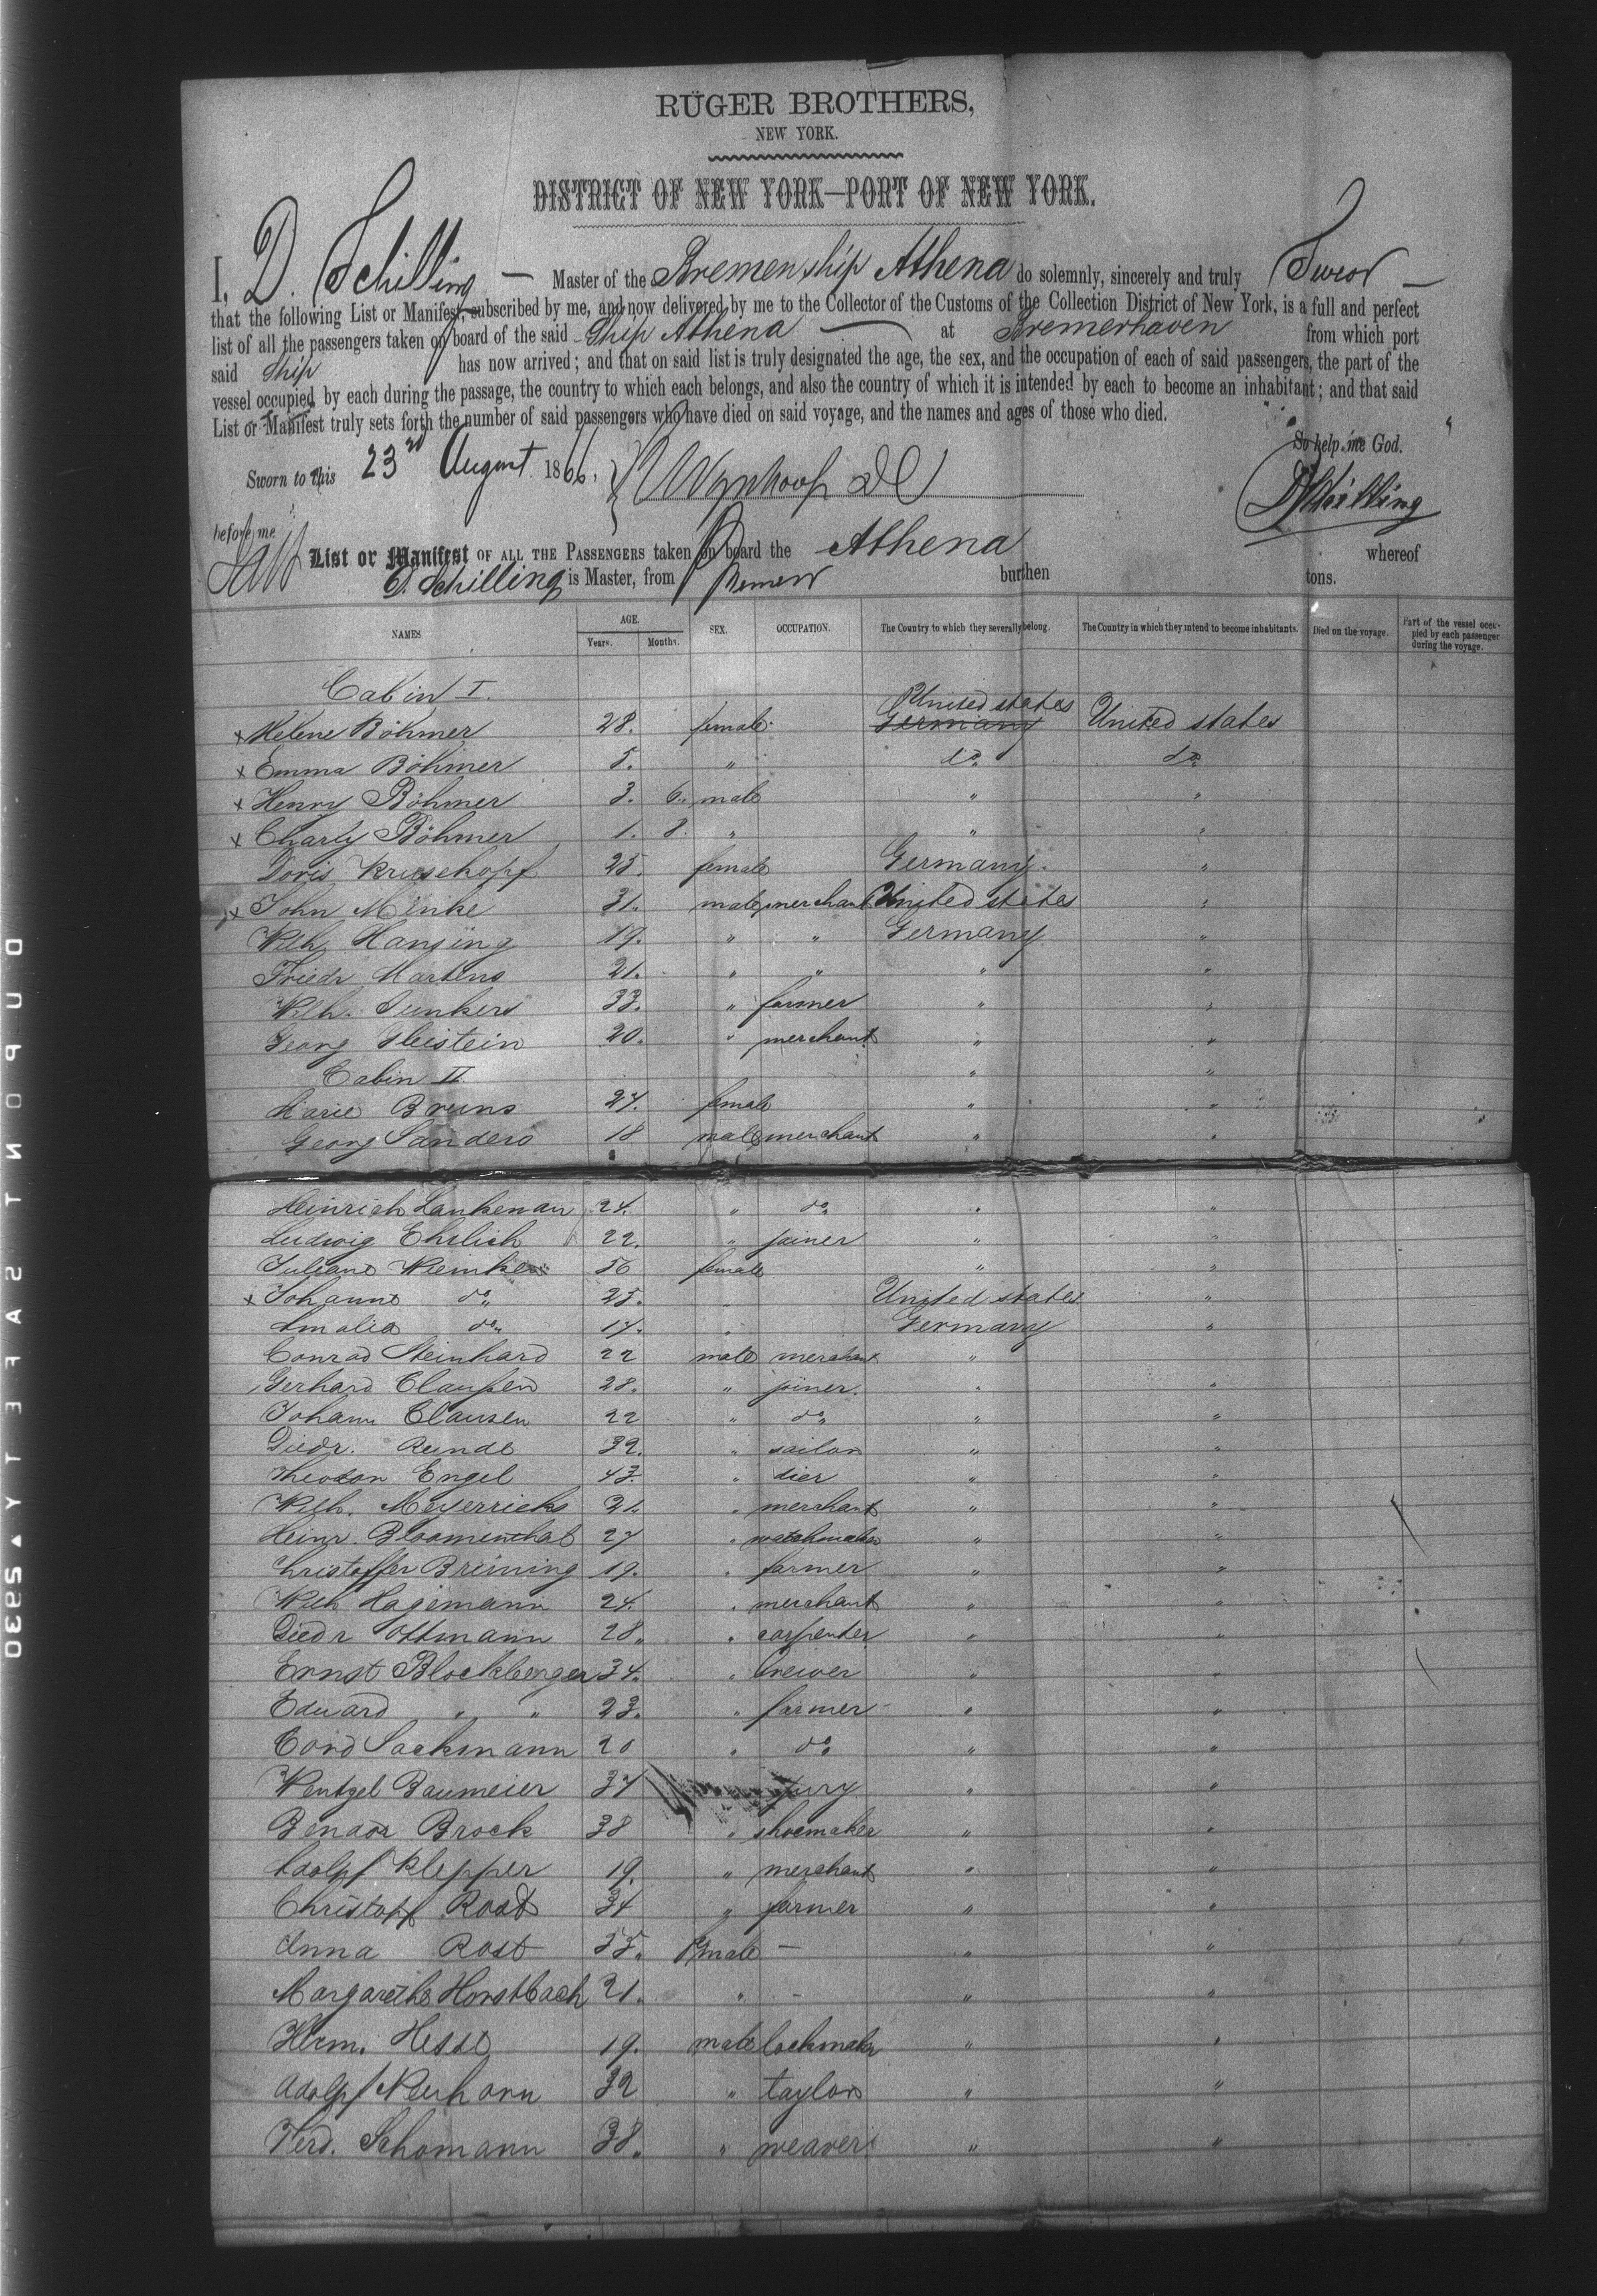 RÜGER BROTHERS,
NEW YORK.
DISTRICT OF NEW YORK—PORT OF NEW YORK.
I, D. Schilling — Master of the Bremen ship Athena do solemnly, sincerely and truly Swear —
that the following List or Manifest, subscribed by me, and now delivered by me to the Collector of the Customs of the Collection District of New York, is a full and perfect
list of all the passengers taken on board of the said Ship Athena — at Bremerhaven from which port
said Ship has now arrived; and that on said list is truly designated the age, the sex, and the occupation of each of said passengers, the part of the
vessel occupied by each during the passage, the country to which each belongs, and also the country of which it is intended by each to become an inhabitant; and that said
List or Manifest truly sets forth the number of said passengers who have died on said voyage, and the names and ages of those who died.
So help me God.
Sworn to this 23rd August 1866,
DSchilling
before me
List or Manifest OF ALL THE PASSENGERS taken on board the Athena whereof
D. Schilling is Master, from Bremen burthen tons.
NAMES. AGE. Years. Months. SEX. OCCUPATION. The Country to which they severally belong. The Country in which they intend to become inhabitants. Died on the voyage. Part of the vessel occupied by each passenger during the voyage.
Cabin I.
United states
x Helene Böhmer 28. female Germany United states
x Emma Böhmer 5. " do do
x Henry Böhmer 3. 6. male " "
x Charly Böhmer 1. 8. " " "
Doris Kruschopf 25. female Germany "
x John Minke 31. male merchant United states "
Wilh. Hansing 19. " " Germany "
Friedr Martens 21. " " " "
Wilh. Junkers 33. " farmer " "
Georg Gleistein 20. " merchant " "
Cabin II. " "
Marie Bruns 24. female " "
Georg Sanders 18 male merchant " "
Heinrich Lankenau 24. " do " "
Ludwig Ehrlich 22. " joiner " "
Juliane Reinken 56 female " "
x Johanne do 25. " United states "
Amalia do 17. " Germany "
Conrad Steinhard 22 male merchant "
Gerhard Claußen 28. " joiner. " "
Johann Clausen 22 " do " "
Diedr. Runde 32. " sailor " "
Theodor Engel 43. " dier " "
Wilh. Meyerricks 21. " merchant " "
Heinr. Bloomenthal 27 " watchmaker " "
Christoffer Brüning 19. " farmer " "
Wilh Hagemann 24. " merchant " "
Diedr Ottmann 28. " carpenter " "
Ernst Blockberger 34. " brewer " "
Eduard " " 23. " farmer " "
Cord Sackmann 20 " do " "
Wentzel Baumeier 37 " "
Bendor Brock 38 " shoemaker " "
Adolpf Klepper 19. " merchant " "
Christopf Rost 34 " farmer " "
Anna Rost 33. female — " "
Margarethe Horstbach 21. " - " "
Herm. Hesse 19. male lockmaker " "
Adolpf Neuhorn 32 " taylor " "
Ferd. Schomann 38. " weaver " "
DUPONT SAFETY ▲ 5930